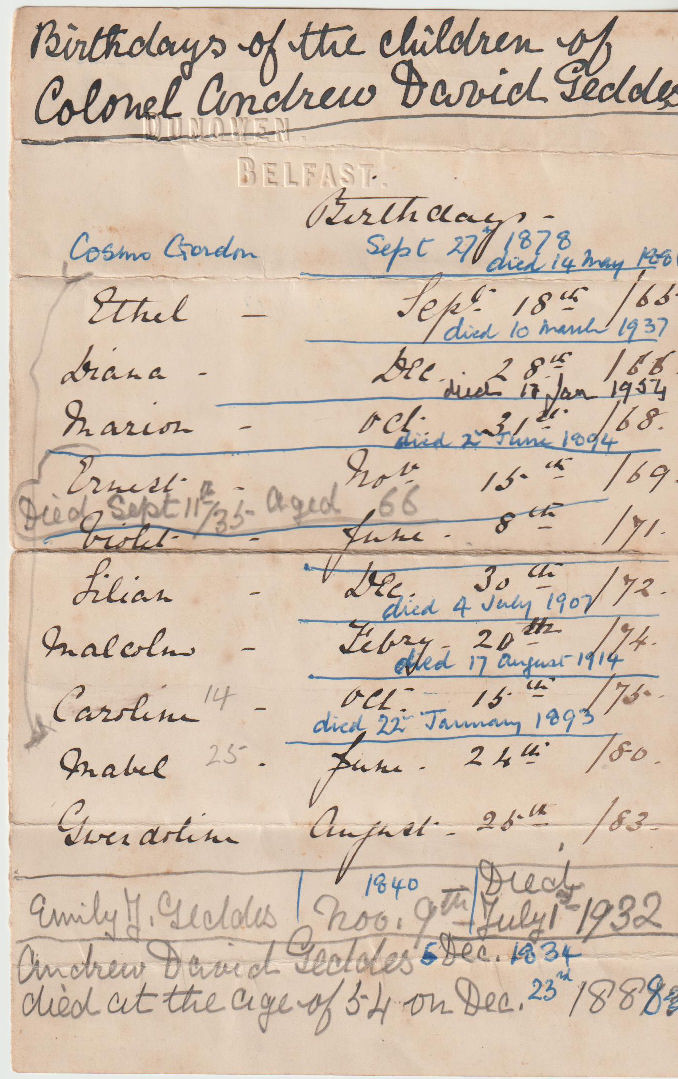 Birthdays of the children of
Colonel Andrew David Geddes
DUNOWEN.
BELFAST.
Birthdays -
Cosmo Gordon Sept 27th 1878
died 14 May 188
Ethel - Sept. 18th /65
died 10 March 1937
Diana - Dec. 28th /66
died 17 Jan 1954
Marion - Oct. 31st /68.
died 2nd June 1894
Ernest - Novr. 15th /69
Died Sept 11th/35 Aged 66
Violet - June 8th /71.
Lilian - Dec. 30th /72.
died 4 July 1907
Malcolm - Febry. 20th /74.
died 17 August 1914
Caroline 14 - Oct. 15th /75.
died 22 January 1893
Mabel 25 - June - 24th /80.
Gwendoline August - 25th /83-
1840 Died
Emily J. Geddes Nov. 9th July 1st 1932
Andrew David Geddes 5 Dec. 1834
died at the age of 54 on Dec. 23rd 1888